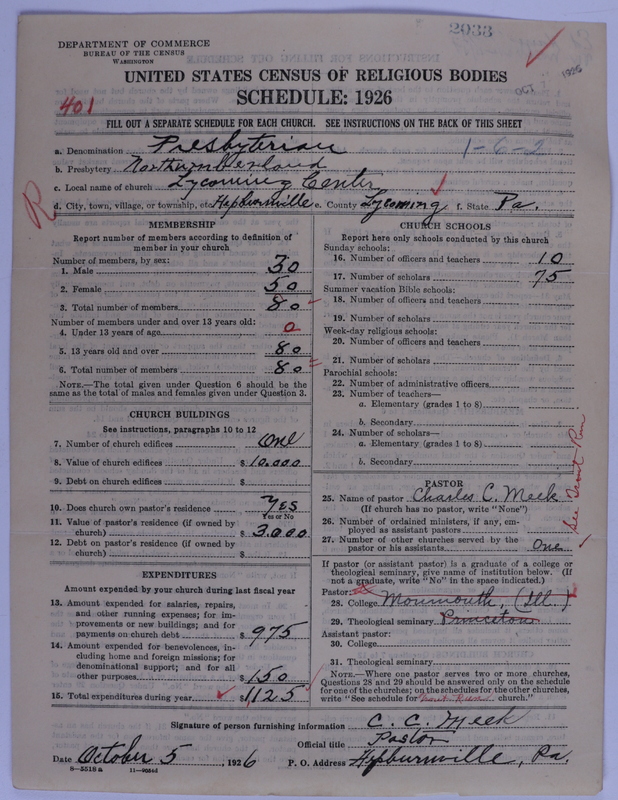 2033
DEPARTMENT OF COMMERCE
BUREAU OF THE CENSUS
WASHINGTON
UNITED STATES CENSUS OF RELIGIOUS BODIES
OCT 1926
SCHEDULE: 1926
401
FILL OUT A SEPARATE SCHEDULE FOR EACH CHURCH. SEE INSTRUCTIONS ON THE BACK OF THIS SHEET
a. Denomination Presbyterian 1-6-2
b. Presbytery Northumberland
c. Local name of church Lycoming Center
R
d. City, town, village, or township, etc. Hepburnville e. County Lycoming f. State Pa.
MEMBERSHIP
Report number of members according to definition of
member in your church
Number of members, by sex:
1. Male 30
2. Female 50
3. Total number of members 80
Number of members under and over 13 years old:
4. Under 13 years of age 0
5. 13 years old and over 80
6. Total number of members 80
NOTE.—The total given under Question 6 should be the
same as the total of males and females given under Question 3.
CHURCH BUILDINGS
See instructions, paragraphs 10 to 12
7. Number of church edifices One
8. Value of church edifices $10.000
9. Debt on church edifices $
10. Does church own pastor's residence Yes
Yes or No
11. Value of pastor's residence (if owned by
church) $3.000
12. Debt on pastor's residence (if owned by
church) $
EXPENDITURES
Amount expended by your church during last fiscal year
13. Amount expended for salaries, repairs,
and other running expenses; for im-
provements or new buildings; and for
payments on church debt $975
14. Amount expended for benevolences, in-
cluding home and foreign missions; for
denominational support; and for all
other purposes $150
15. Total expenditures during year $1125
CHURCH SCHOOLS
Report here only schools conducted by this church
Sunday schools:
16. Number of officers and teachers 10
17. Number of scholars 75
Summer vacation Bible schools:
18. Number of officers and teachers
19. Number of scholars
Week-day religious schools:
20. Number of officers and teachers
21. Number of scholars
Parochial schools:
22. Number of administrative officers
23. Number of teachers—
a. Elementary (grades 1 to 8)
b. Secondary
24. Number of scholars—
a. Elementary (grades 1 to 8)
b. Secondary
PASTOR
25. Name of pastor Charles C. Meek
(If church has no pastor, write "None")
26. Number of ordained ministers, if any, em-
ployed as assistant pastors
27. Number of other churches served by the
pastor or his assistants One
See Trout Run
If pastor (or assistant pastor) is a graduate of a college or
theological seminary, give name of institution below. (If
not a graduate, write "No" in the space indicated.)
Pastor:
28. College Monmouth, (Ill.)
29. Theological seminary Princeton
Assistant pastor:
30. College
31. Theological seminary
NOTE.—Where one pastor serves two or more churches,
Questions 28 and 29 should be answered only on the schedule
for one of the churches; on the schedules for the other churches,
write "See schedule for Trout Run church."
Signature of person furnishing information C. C. Meek
Official title Pastor
Date October 5, 1926 P. O. Address Hepburnville, Pa.
8—5518a 11—9054d